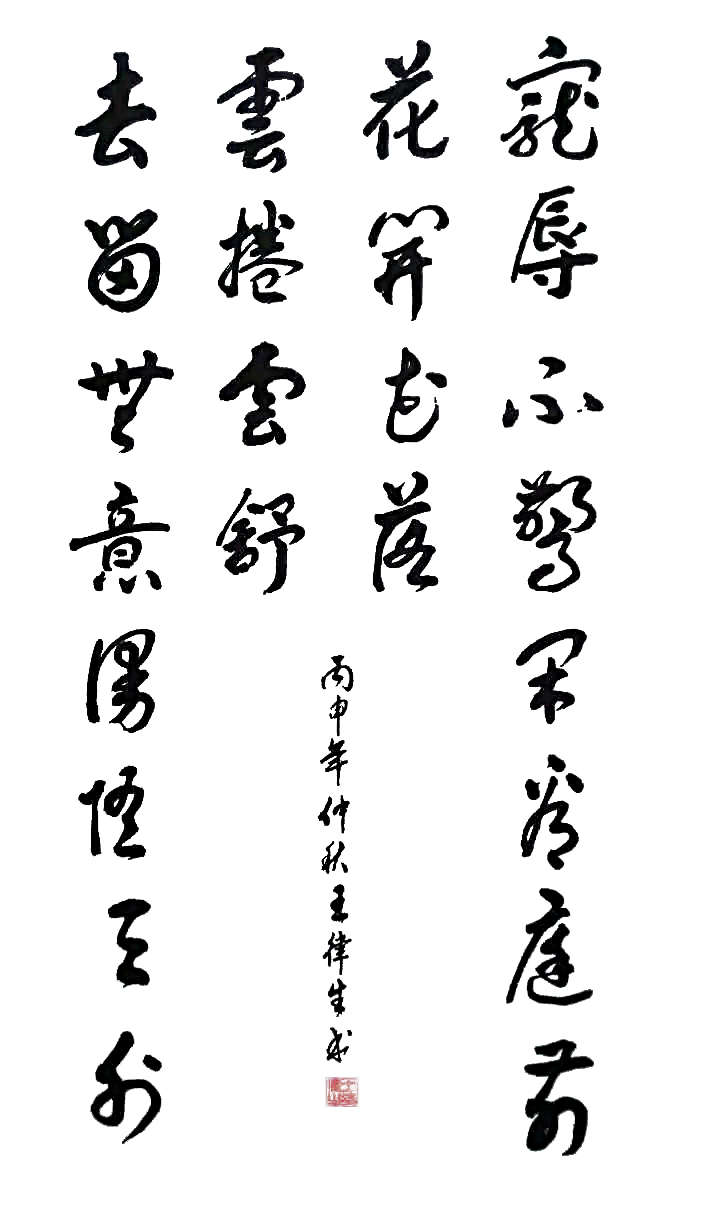 寵辱不驚閑看庭前
花開花落
去留無意漫隨天外
雲捲雲舒
丙申年仲秋王律生書